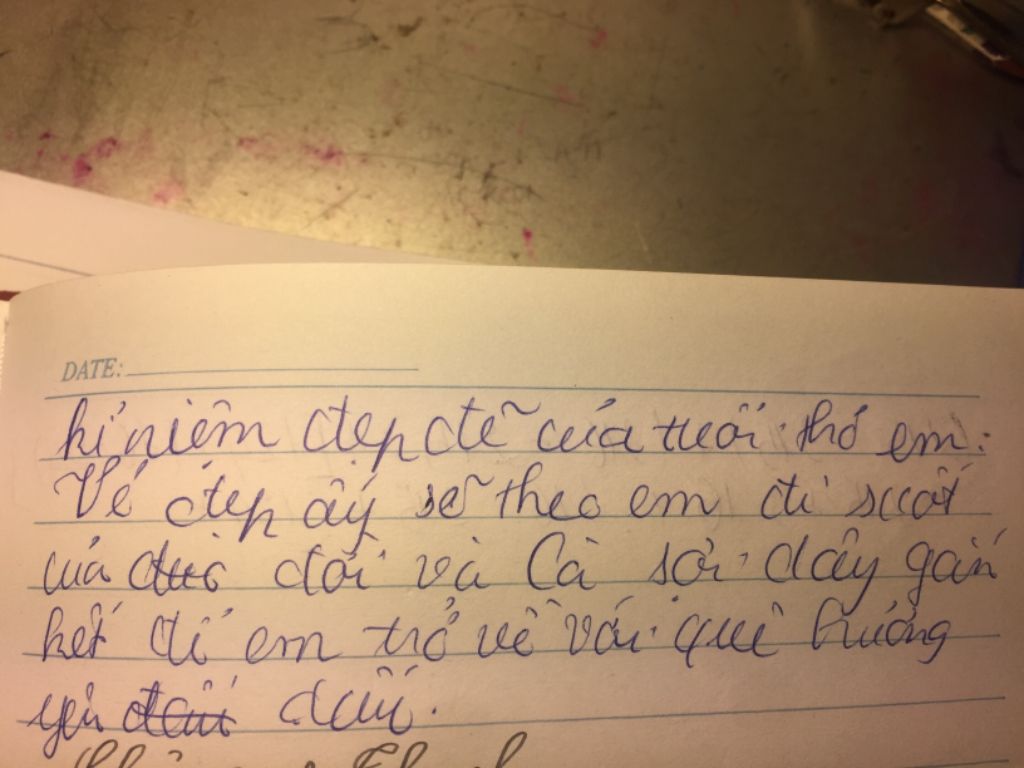 DATE:
kỉ niệm đẹp đẽ của tuổi thơ em.
Vẻ đẹp ấy sẽ theo em đi suốt
của đời và là sợi dây gắn
kết để em trở về với quê hương
yêu dấu.